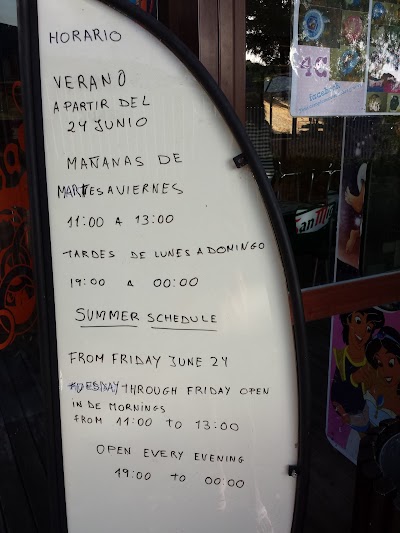 HORARIO
VERANO
A PARTIR DEL
24 JUNIO
MAÑANAS DE
MARTES A VIERNES
11:00 A 13:00
TARDES DE LUNES A DOMINGO
19:00 A 00:00
SUMMER SCHEDULE
FROM FRIDAY JUNE 24
TUESDAY THROUGH FRIDAY OPEN
IN DE MORNINGS
FROM 11:00 TO 13:00
OPEN EVERY EVENING
19:00 TO 00:00
facebook